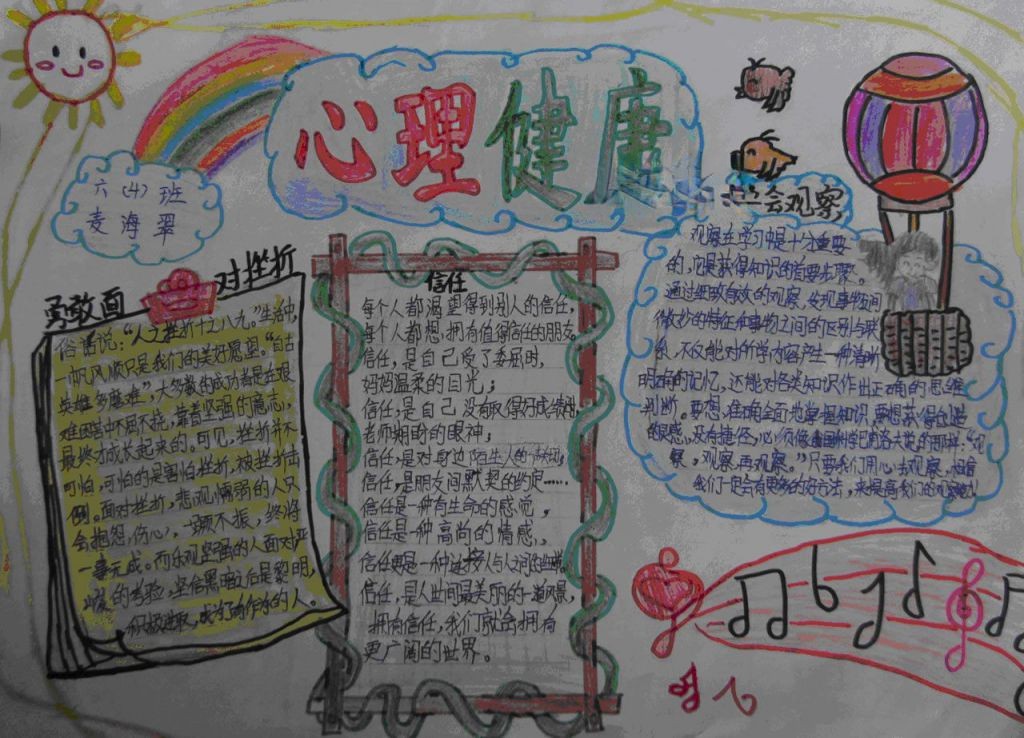 心理健康
六(4)班
麦海翠
勇敢面对挫折
俗话说:"人之挫折十之八九。"生活中,
一帆风顺只是我们的美好愿望。"自古
英雄多磨难",大多数的成功者是在艰
难困苦中不屈不挠,靠着坚强的意志,
最终才成长起来的。可见,挫折并不
可怕,可怕的是害怕挫折,被挫折击
倒。面对挫折,悲观懦弱的人只
会抱怨,伤心,一蹶不振,终将
一事无成。而乐观坚强的人面对严
峻的考验,坚信黑暗后是黎明,
积极进取,成为有作为的人。
信任
每个人都渴望得到别人的信任,
每个人都想,拥有值得信任的朋友
信任,是自己受了委屈时,
妈妈温柔的目光;
信任,是自己没有取得好成绩时,
老师期盼的眼神;
信任,是对身边陌生人的
信任,是朋友间默契的约定……
信任是一种有生命的感觉,
信任是一种高尚的情感,
信任更是一种连接人与人之间的
信任,是人世间最美丽的一道风景,
拥有信任,我们就会拥有
更广阔的世界。
会观察
观察在学习中是十分重要
的,它是获得知识的首要步骤。
通过细致有效的观察,发现事物间
微妙的特征和事物之间的区别与联
系,不仅能对所学内容产生一种清晰
明确的记忆,还能对各类知识作出正确的思维
判断。要想准确全面地掌握知识,要想获得创造
的灵感,没有捷径,必须像
察,观察,再观察。"只要我们用心去观察,相信
我们一定会有更多的好方法,来提高我们的观察能力